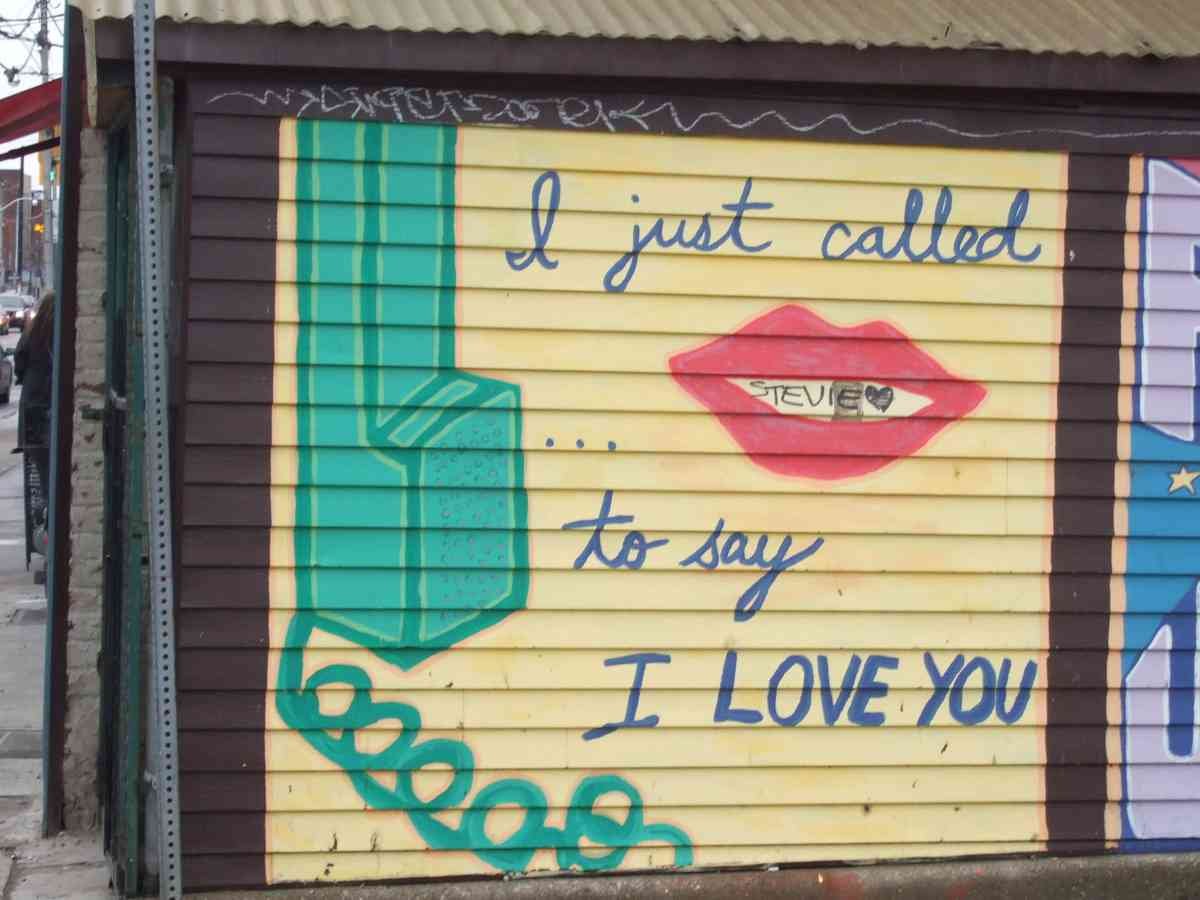 I just called
STEVIE
...
to say
I LOVE YOU